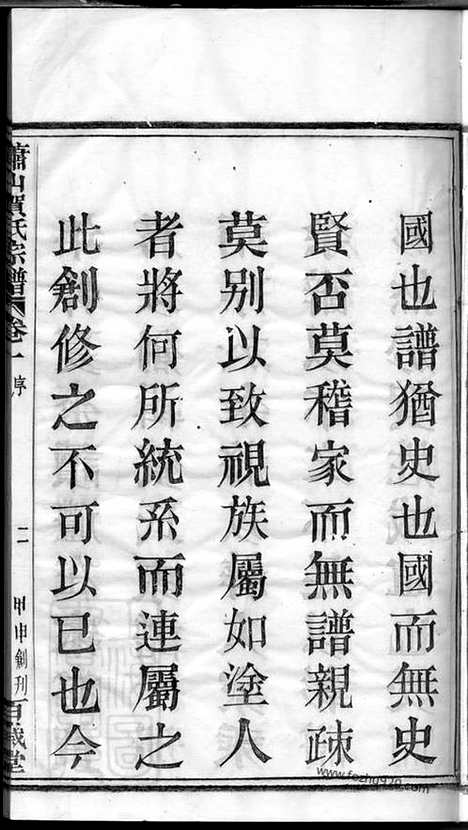 國也譜猶史也國而無史
賢否莫稽家而無譜親疎
莫别以致視族屬如塗人
者將何所統系而連屬之
此創修之不可以已也今
蕭山賀氏宗譜 卷一 序 二 甲申創刊 百歲堂
www.fozhg920.com